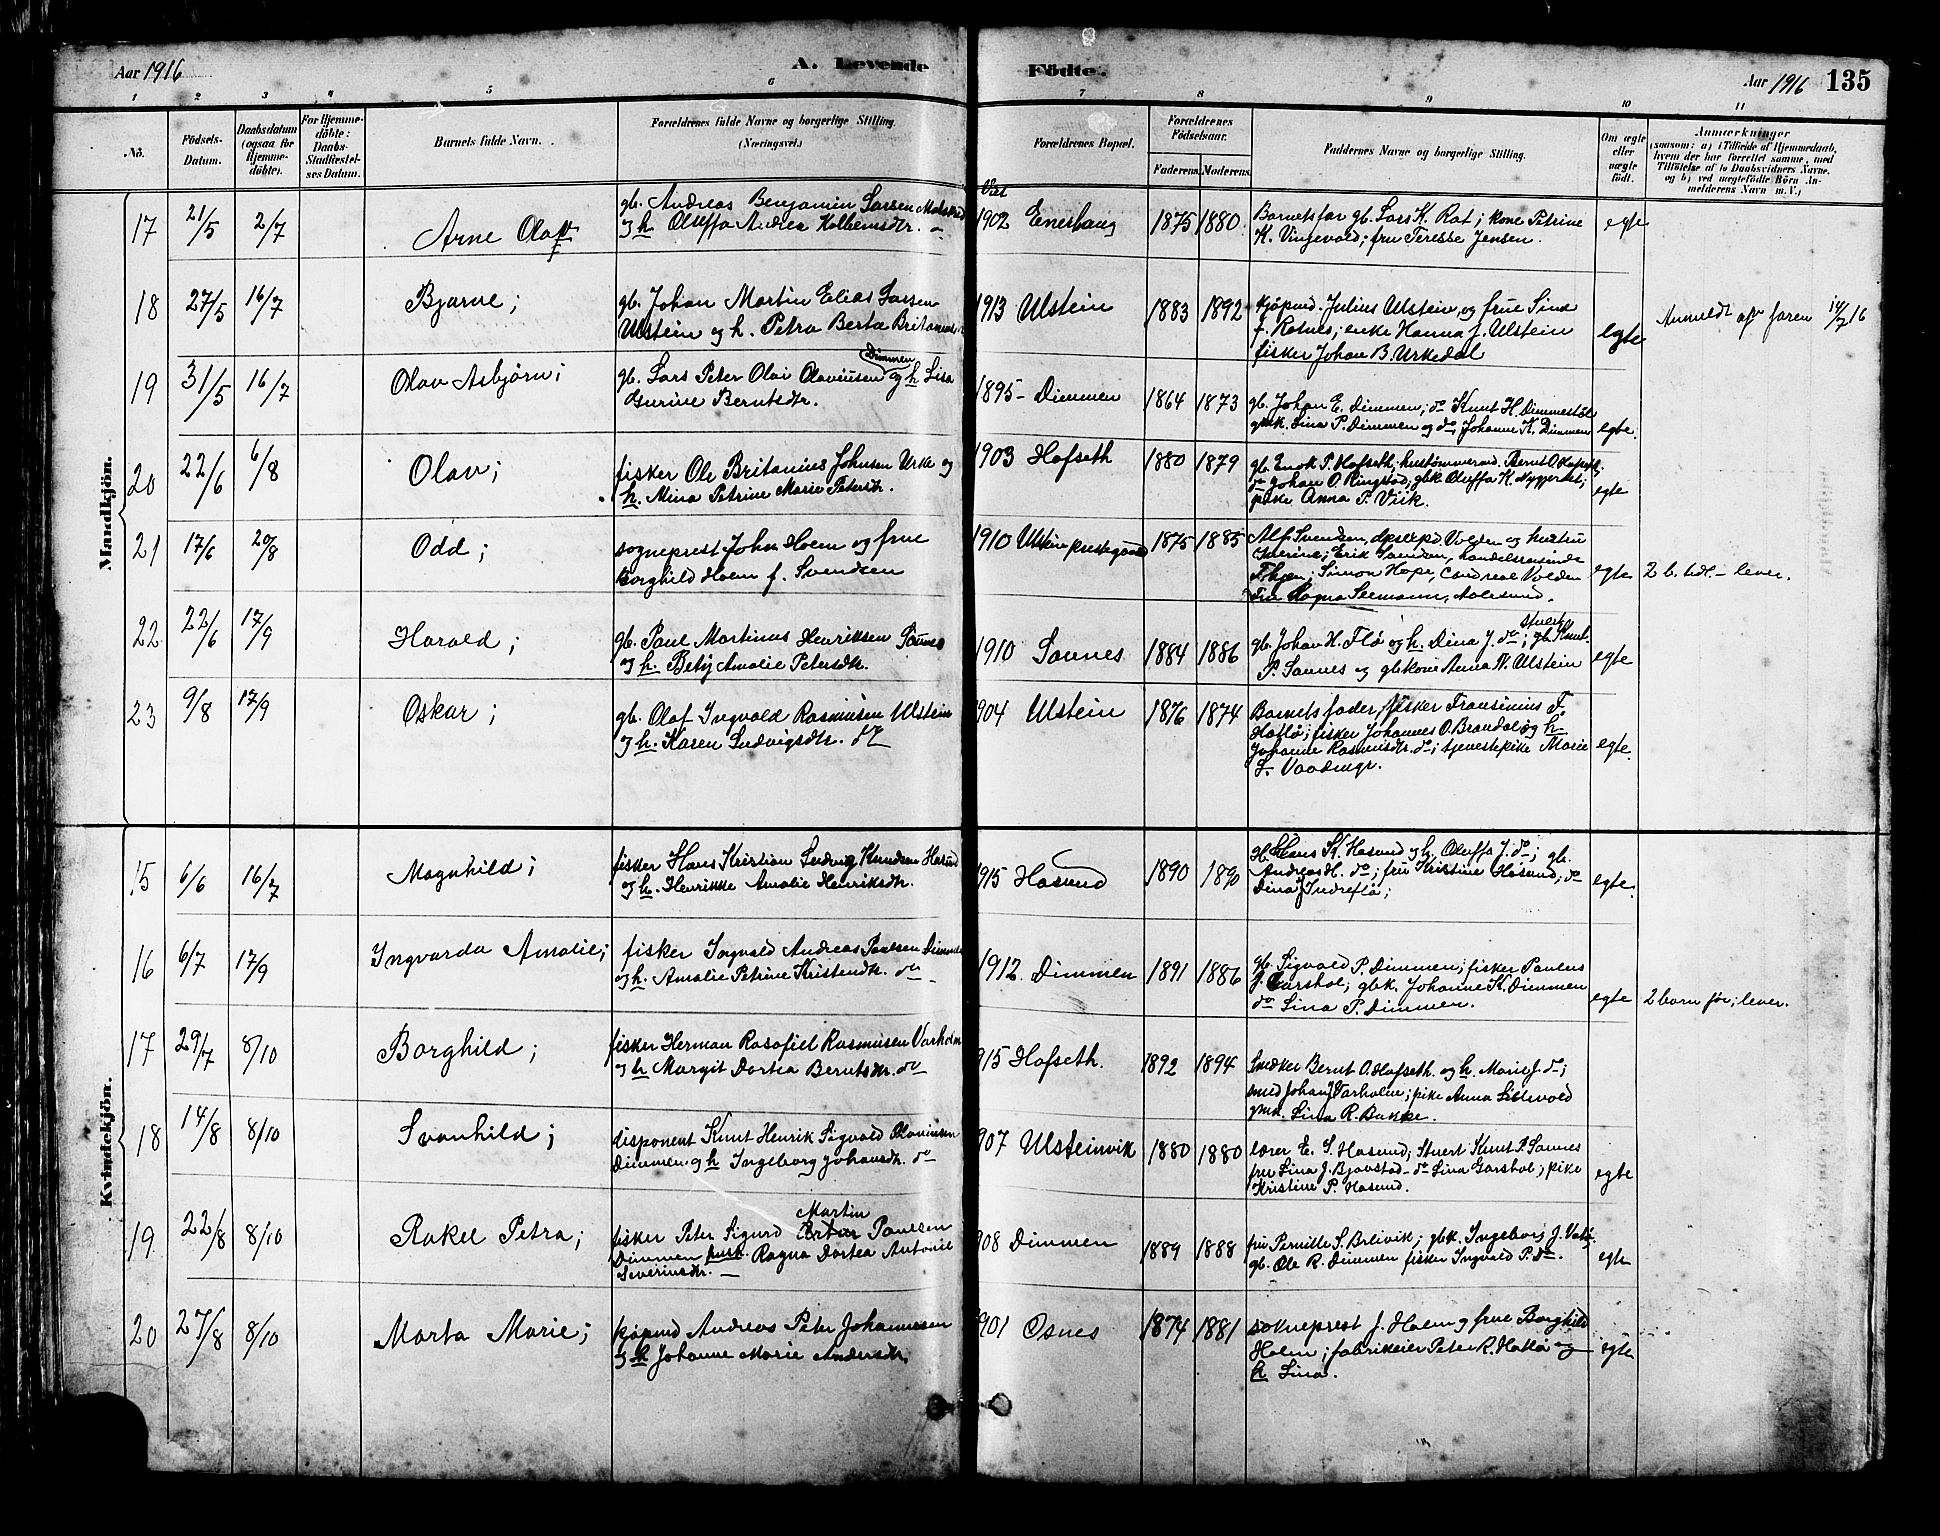 Aar 1916
A. Levende
Födte.
Aar 1916
135
1 2 3 4 5 6 7 8 9 10 11
No.
Födsels-Datum.
Daabsdatum (ogsaa for Hjemme-döbte).
For Hjemme-döbte: Daabs-Stadfæstel-ses Datum.
Barnets fulde Navn.
Forældrenes fulde Navne og borgerlige Stilling. (Næringsvei.)
Forældrenes Bopæl.
Forældrenes Födselsaar.
Faderens. Moderens.
Faddernes Navne og borgerlige Stilling.
Om ægte eller uægte födt.
Anmærkninger
(saasom: a) i Tilfælde af Hjemmedaab, hvem der har forrettet samme, med Tilföielse af to Daabsvidners Navne, og b) ved uægtefödte Börn Anmelderens Navn m. V.)
Mandkjön.
17 21/5 2/7 Arne Olaf
gb. Andreas Benjamin Larsen
og h Oluffa Andrea
Viet
1902 Enerhaug 1875 1880
Barnets far gb. Lars K. Rot; kone Petrine
K. Vingevold; fru Teresse Jensen.
egte
18 27/5 16/7 Bjarne;
gb. Johan Martin Elias Larsen
Ulstein og h. Petra Berta
1913 Ulstein 1883 1892
kjøpmd. Julius Ulstein og frue Sina
f. Rotnes; enke Hanna J. Ulstein
fisker Johan B. Urkedal
egte
Anmeldt af faren 14/7 16
19 31/5 16/7 Olav Asbjørn;
Dimmen
gb. Lars Peter Olai Olaviusen og h Lisa
Gurine Berntsdtr.
1895 - Dimmen 1864 1873
gb. Johan E. Dimmen; do Knut H. Dimmestøl
gbk. Lina P. Dimmen og do Johanne K. Dimmen
egte.
20 22/6 6/8 Olav;
fisker Ole Britanius Johnsen Urke og
h. Nina Petrine Marie Petersdtr.
1903 Hofseth 1880 1879
gb. Enok P. Hofseth; hustømmermd. Bernt O. Hofseth;
do Johan O. Ringstad; gbk. Oluffa K. Nygjerdet;
pike Anna P. Viik.
egte
21 17/6 20/8 Odd;
sogneprest John Hoem og frue
Borghild Hoem f. Svendsen
1910 Ulstein prestegaard 1875 1885
Alf Svendsen, Volden og hustru
Erik Svendsen, handelsreisende
Simon Hope, Volden
Fru Ragna Seemann, Aalesund.
egte
2 b. tidl. - lever.
22 22/6 17/9 Harald;
gb. Paul Martinus Henriksen Saunes
og h. Betzy Amalie Petersdtr.
1910 Saunes 1884 1886
gb. Johan H. Flø og h. Dina J. do; gb. Knut
P. Saunes og gbkone Anna N. Ulstein
egte
23 9/8 17/9 Oskar;
gb. Olaf Ingvald Rasmusen Ulstein
og h. Karen Ludvigsdtr. do
1904 Ulstein 1876 1874
Barnets fader, fisker Fransinius F.
Hatlø; fisker Johannes O. Brandal og h
Johanne Rasmusdtr. do; tjenestepike Marie
egte.
Kvindekjön.
15 6/6 16/7 Magnhild;
fisker Hans Kristian Ludvig Knudsen Hasund
og h. Henrikke Amalie Henriksdtr.
1915 Hasund 1890 1890
gb. Hans K. Hasund og h. Oluffa J. do; gb.
Andreas H. do; fru Kristine Hasund; do
Dina J Indreflø;
egte.
16 6/7 17/9 Ingvarda Amalie;
fisker Ingvald Andreas Paulsen Dimmen
og h. Amalie Petrine Kristendtr. do
1912. Dimmen 1891 1886
gb. Sigvald P. Dimmen; fisker Paulus
J. Garshol; gbk. Johanne K. Dimmen
do Lina P. Dimmen.
egte
2 barn før; lever.
17 29/7 8/10 Borghild;
fisker Herman Rasmusen Varholm
og h Margit Dortea Berntsdtr. do
1915 Hofseth. 1892 1894
Snedker Bernt O. Hofseth og h. Marie J. do;
smed Johan J Varholm; pike Anna Littevold
Lina R. Bakke.
18 14/8 8/10 Svanhild;
disponent Knut Henrik Sigvald Olaviusen
Dimmen og h Ingeborg Johansdtr. do
1907 Ulsteinvik 1880 1880
lærer E. S. Hasund; Stuert Knut P. Saunes
fru Lina J. Bjaastad - do Lina Garshol; pike
Kristine P. Hasund.
egte
19 22/8 8/10 Rakel Petra;
Martin
fisker Peter Sigurd Paulsen
Dimmen Ragna Dortea Antonie
Severinsdtr.
1908 Dimmen 1889 1888
fru Pernille S. Breivik; gbk. Ingeborg J.
gb. Ole R. Dimmen fisker Ingvald P. do.
egte
20 27/8 8/10 Marta Marie;
kjøpmd Andreas Peter Johannesen
og h Johanne Marie Andersdtr.
1901 Osnes 1874 1881
sokneprest J. Hoem og frue Borghild
Hoem; fabrikeier Peter R. Hatlø og
h Lina.
egte